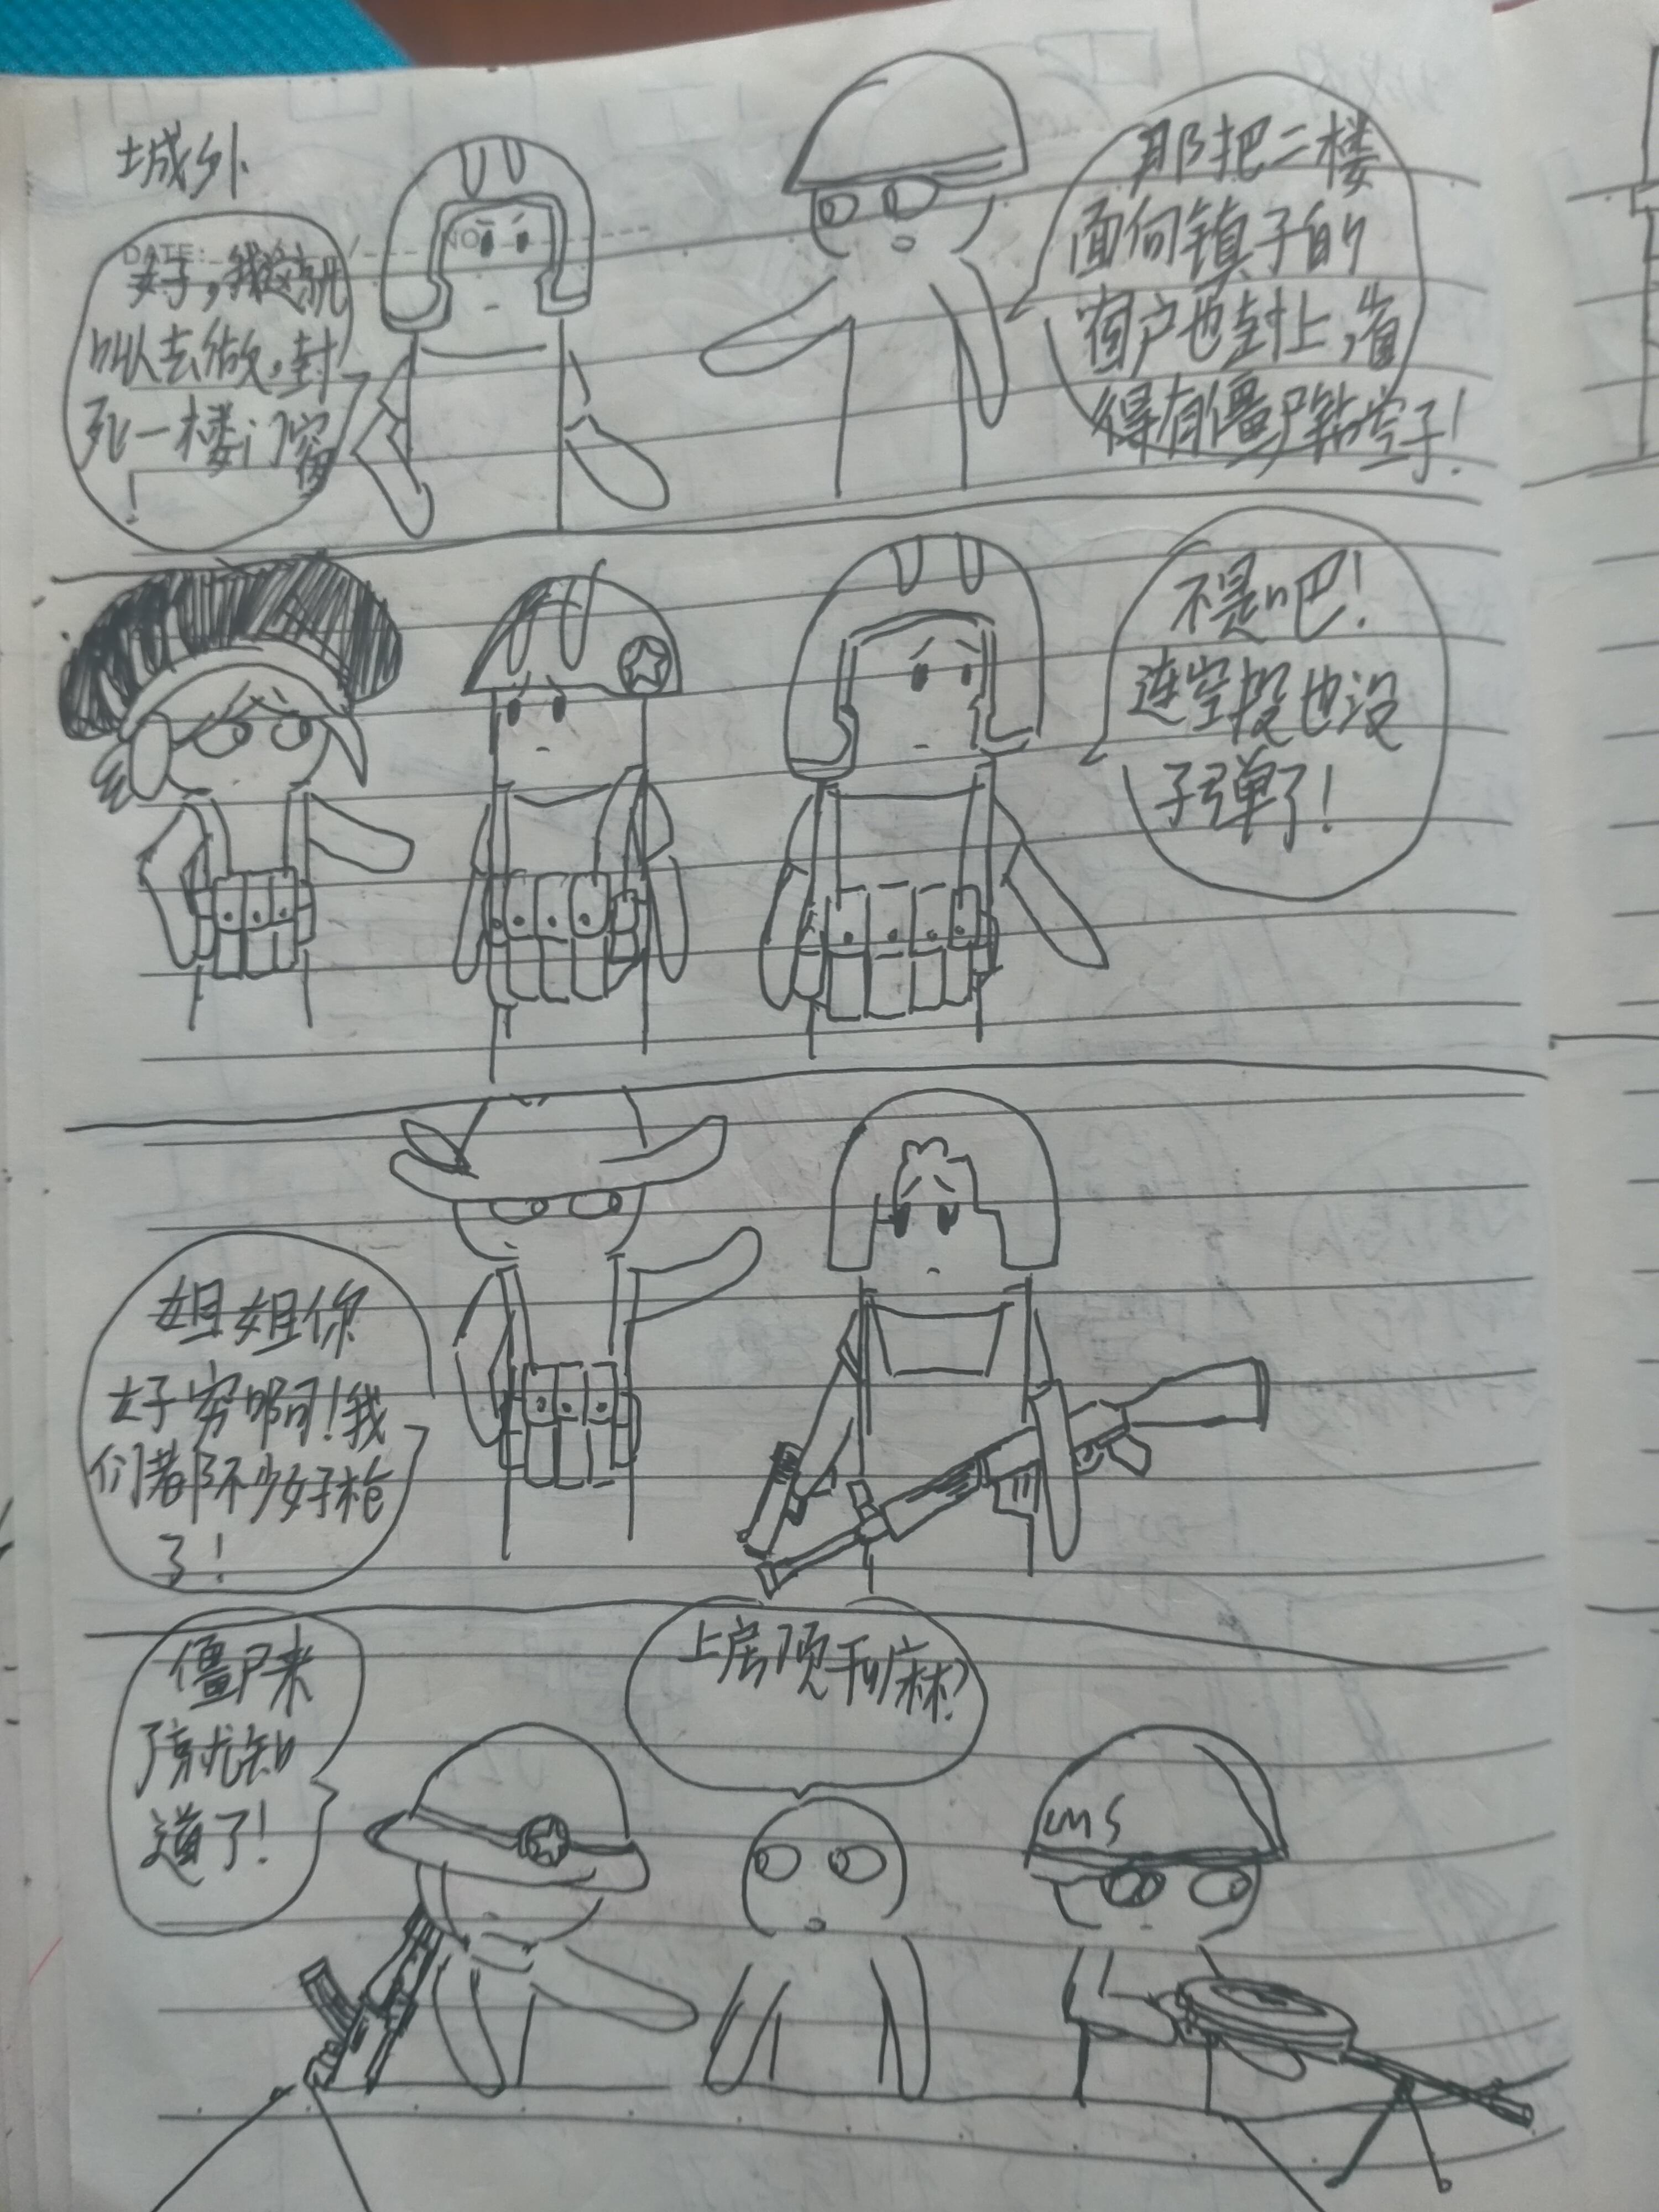 城外
DATE:
NO
好,我这就
叫人去做。封
死一楼门窗
!
那把二楼
面向镇子的
窗户也封上,省
得有僵尸钻空子!
不是吧!
连空投也没
子弹了!
姐姐你
好穷啊!我
们都不少好枪
了!
僵尸来
了就知
道了!
上房顶干嘛?
LMS